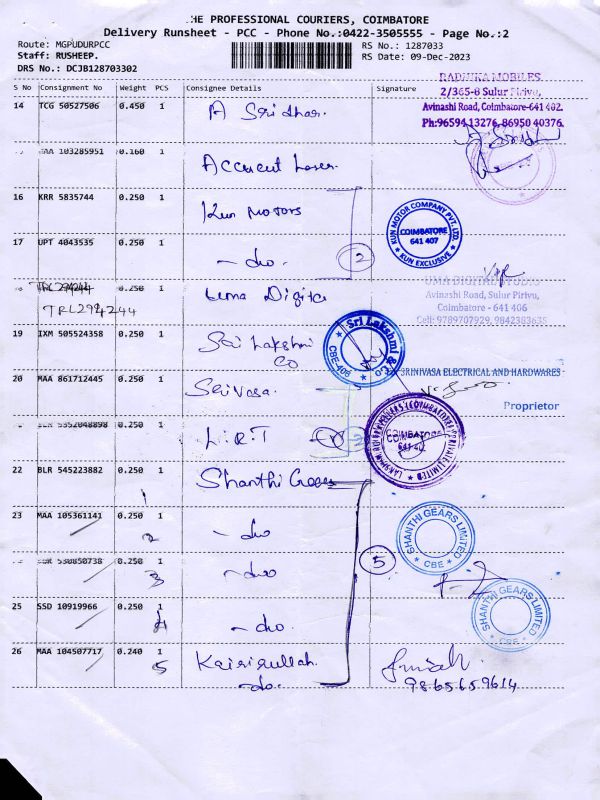 HE PROFESSIONAL COURIERS, COIMBATORE
Delivery Runsheet - PCC - Phone No.:0422-3505555 - Page No.:2
Route: MGPUDURPCC
RS No.: 1287033
Staff: RUSHEEP.
RS Date: 09-Dec-2023
DRS No.: DCJB128703302
S No Consignment No Weight PCS Consignee Details Signature
RADHIKA MOBILES
2/365-8 Sulur Pirivu,
Avinashi Road, Coimbatore-641 402.
Ph:96594 13276, 86950 40376
14 TCG 50527506 0.450 1 A Sridhar.
103285951 0.160 1
16 KRR 5835744 0.250 1 Kun Motors
KUN MOTOR COMPANY PVT. LTD.
COIMBATORE
641 407
* KUN EXCLUSIVE *
17 UPT 4043535 0.250 1 - do - 2
TRL294244 0.250 1 Uma Digital
TRL294244
UMA DIGITAL STUDIO
Avinashi Road, Sulur Pirivu,
Coimbatore - 641 406
Cell: 9789707929, 9842383635
19 IXM 505524358 0.250 1 Sri Lakshmi
Co
Sri Lakshmi &
CO
CBE-406
20 MAA 861712445 0.250 1 Srivasa.
SRINIVASA ELECTRICAL AND HARDWARES
Proprietor
0.250 1 L.R.T 2
COIMBATORE
22 BLR 545223882 0.250 1 Shanthi Gears
1
23 MAA 105361141 0.250 1 - do
2
SHANTHI GEARS LIMITED
* CBE *
5
530850738 0.250 1 - do
3
25 SSD 10919966 0.250 1 - do.
4
SHANTHI GEARS LIMITED
* CBE *
26 MAA 104507717 0.240 1 Kairirullah.
5
- do.
9865659614